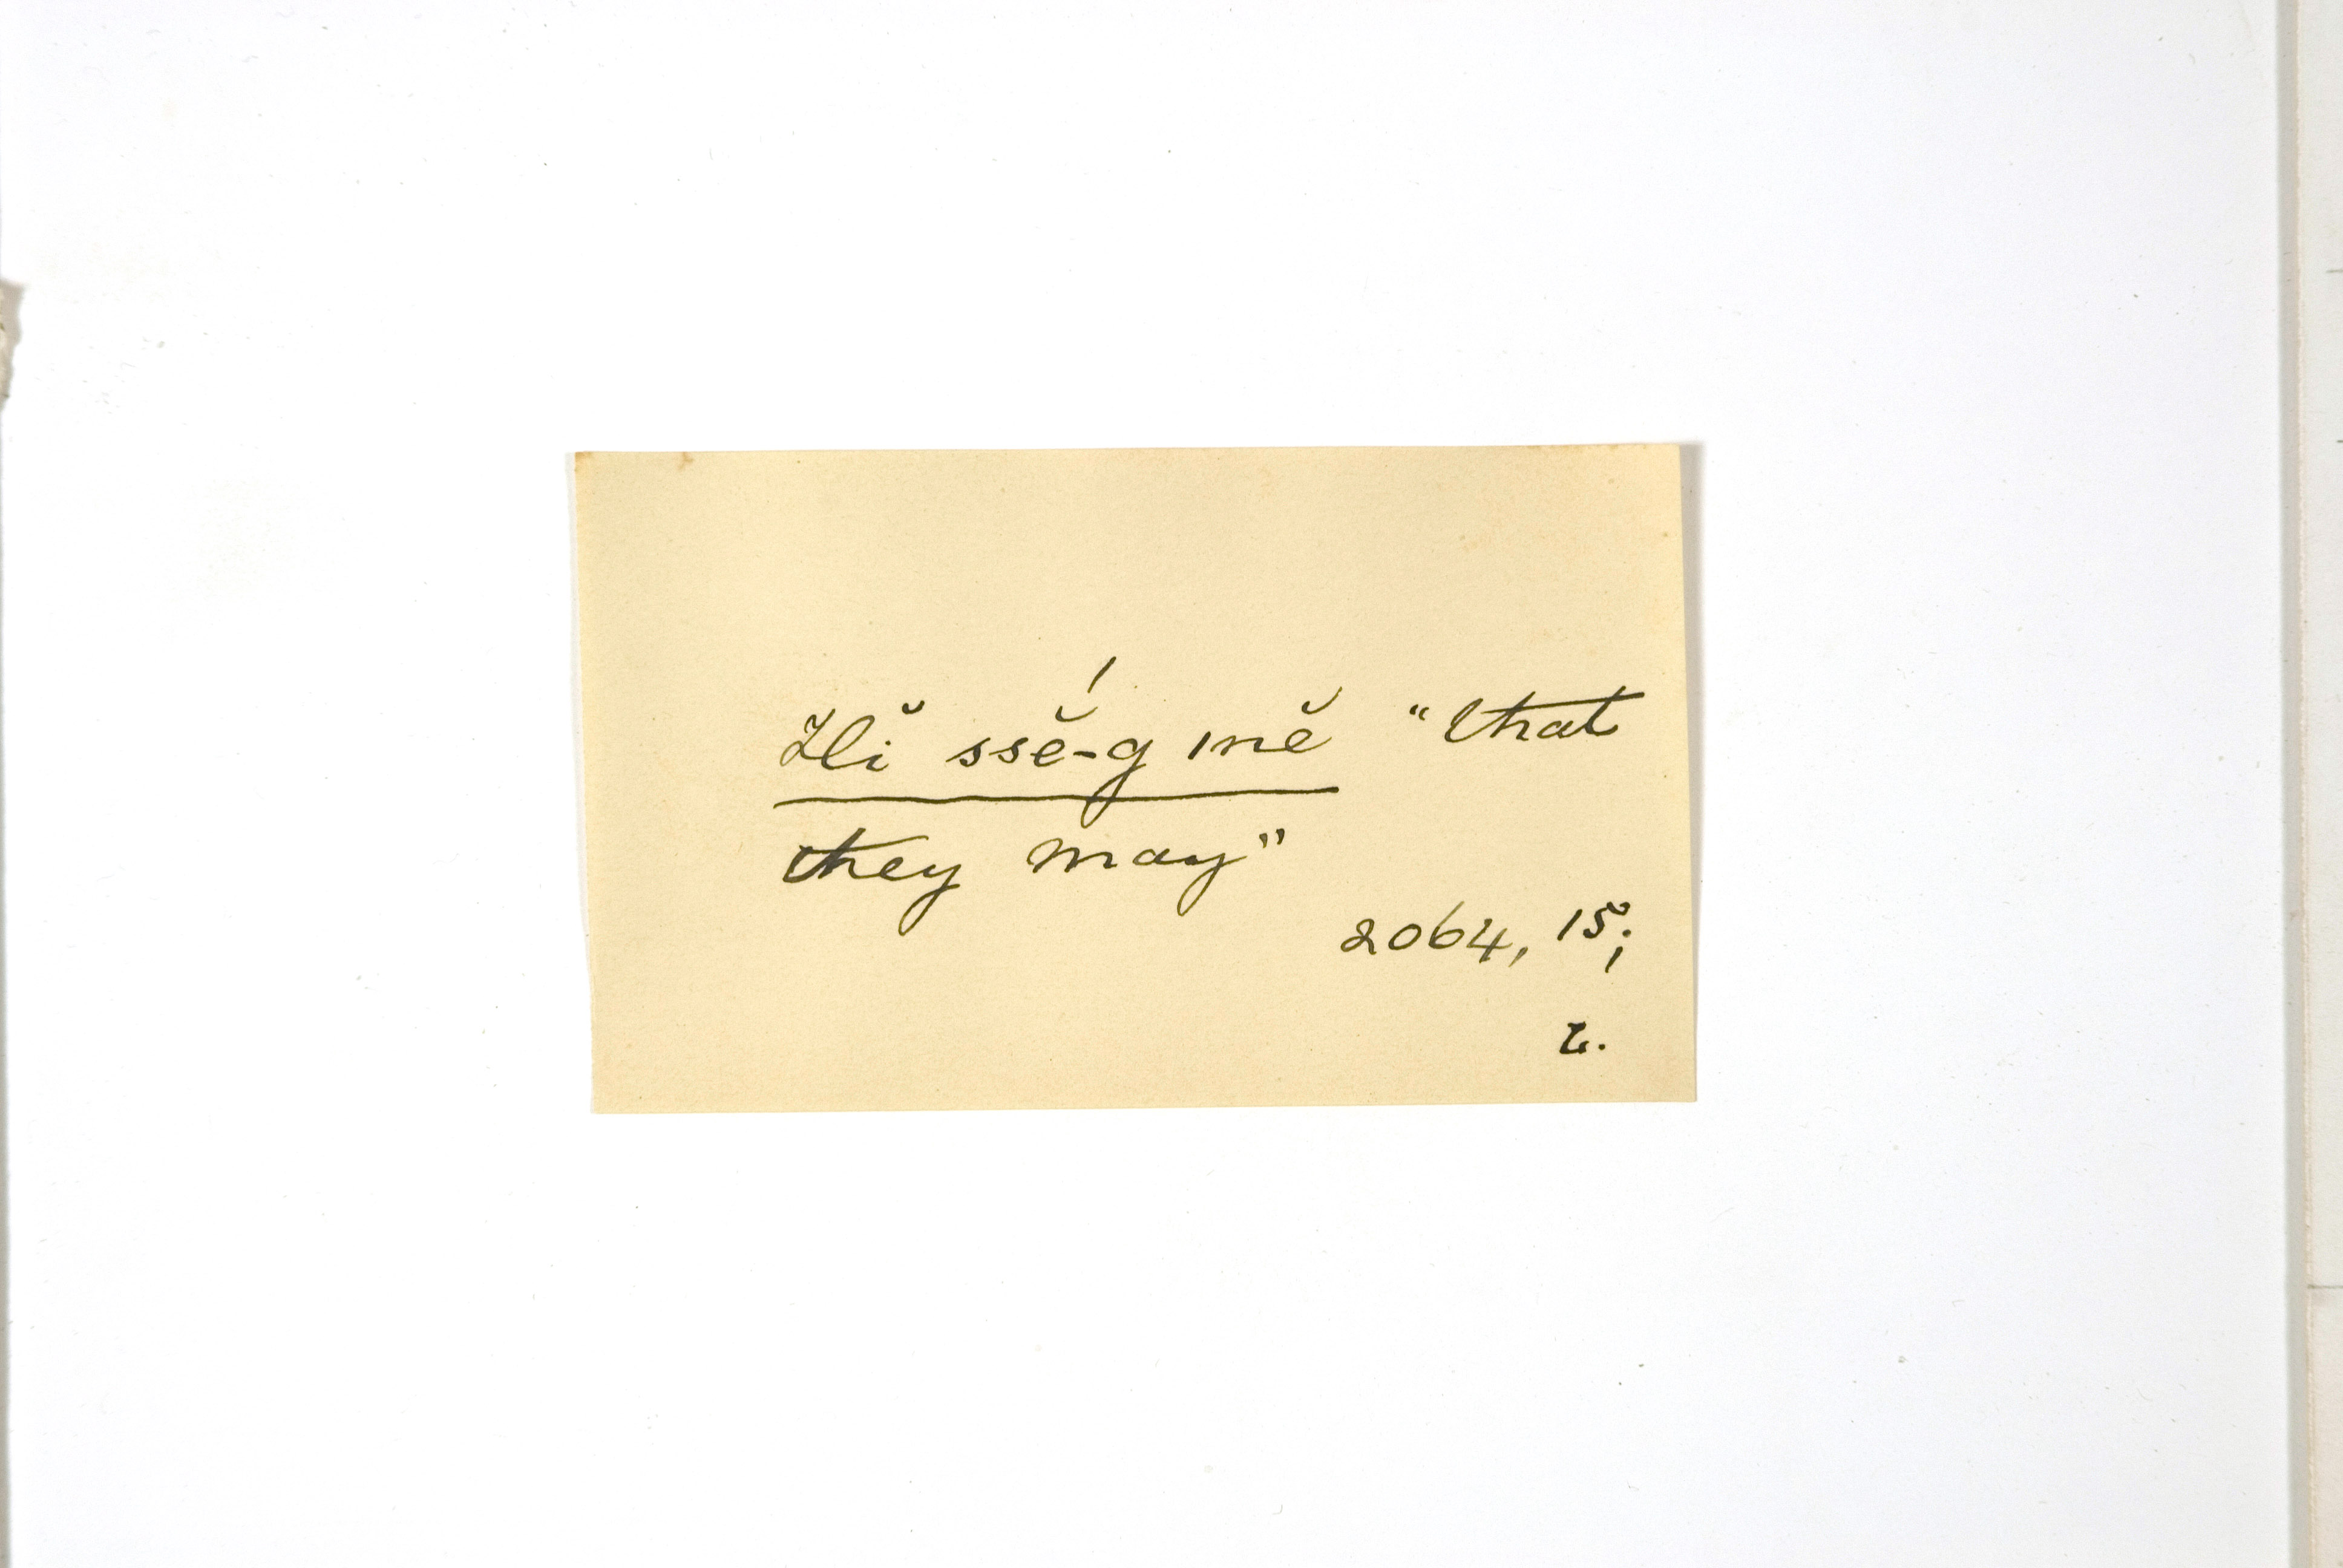 Hĭ ssĕ́-g ınĕ "that
they may"
2064, 15;
L.